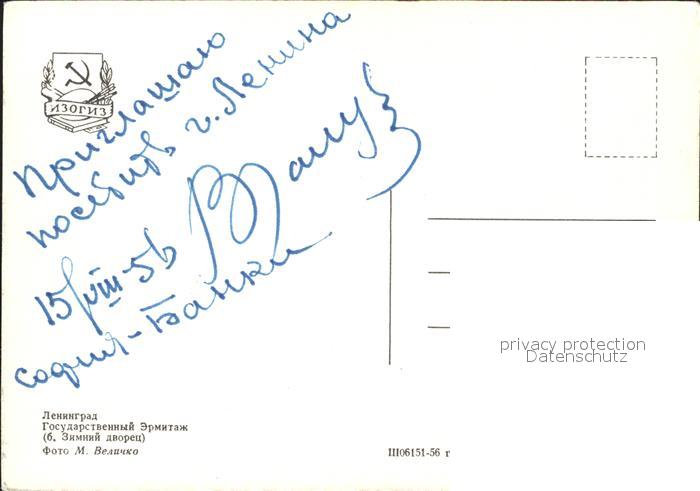 ИЗОГИЗ
Приглашаю
посетить г. Ленина
15/VIII-56
София-Банки
privacy protection
Datenschutz
Ленинград
Государственный Эрмитаж
(б. Зимний дворец)
Фото М. Величко
Ш06151-56 г